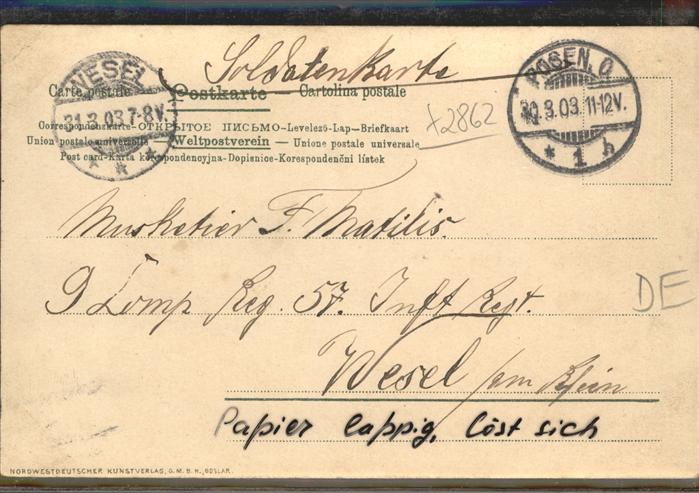 Soldatenkarte
Carte postale — Postkarte — Cartolina postale
Correspondenzkarte-ОТКРЫТОЕ ПИСЬМО-Levelező-Lap-Briefkaart
Union postale universelle — Weltpostverein — Unione postale universale
Post card-Karta korespondencyjna-Dopisnice-Korespondenční lístek
WESEL
31.3.03.7-8V.
POSEN. O
30.3.03.11-12V.
* 1 h
+2862
Musketier F. Matilis.
9 Comp Reg. 57. Inft Regt.
DE
Wesel am Rhein
Papier lappig, löst sich
NORDWESTDEUTSCHER KUNSTVERLAG, G.M.B.H., GOSLAR.